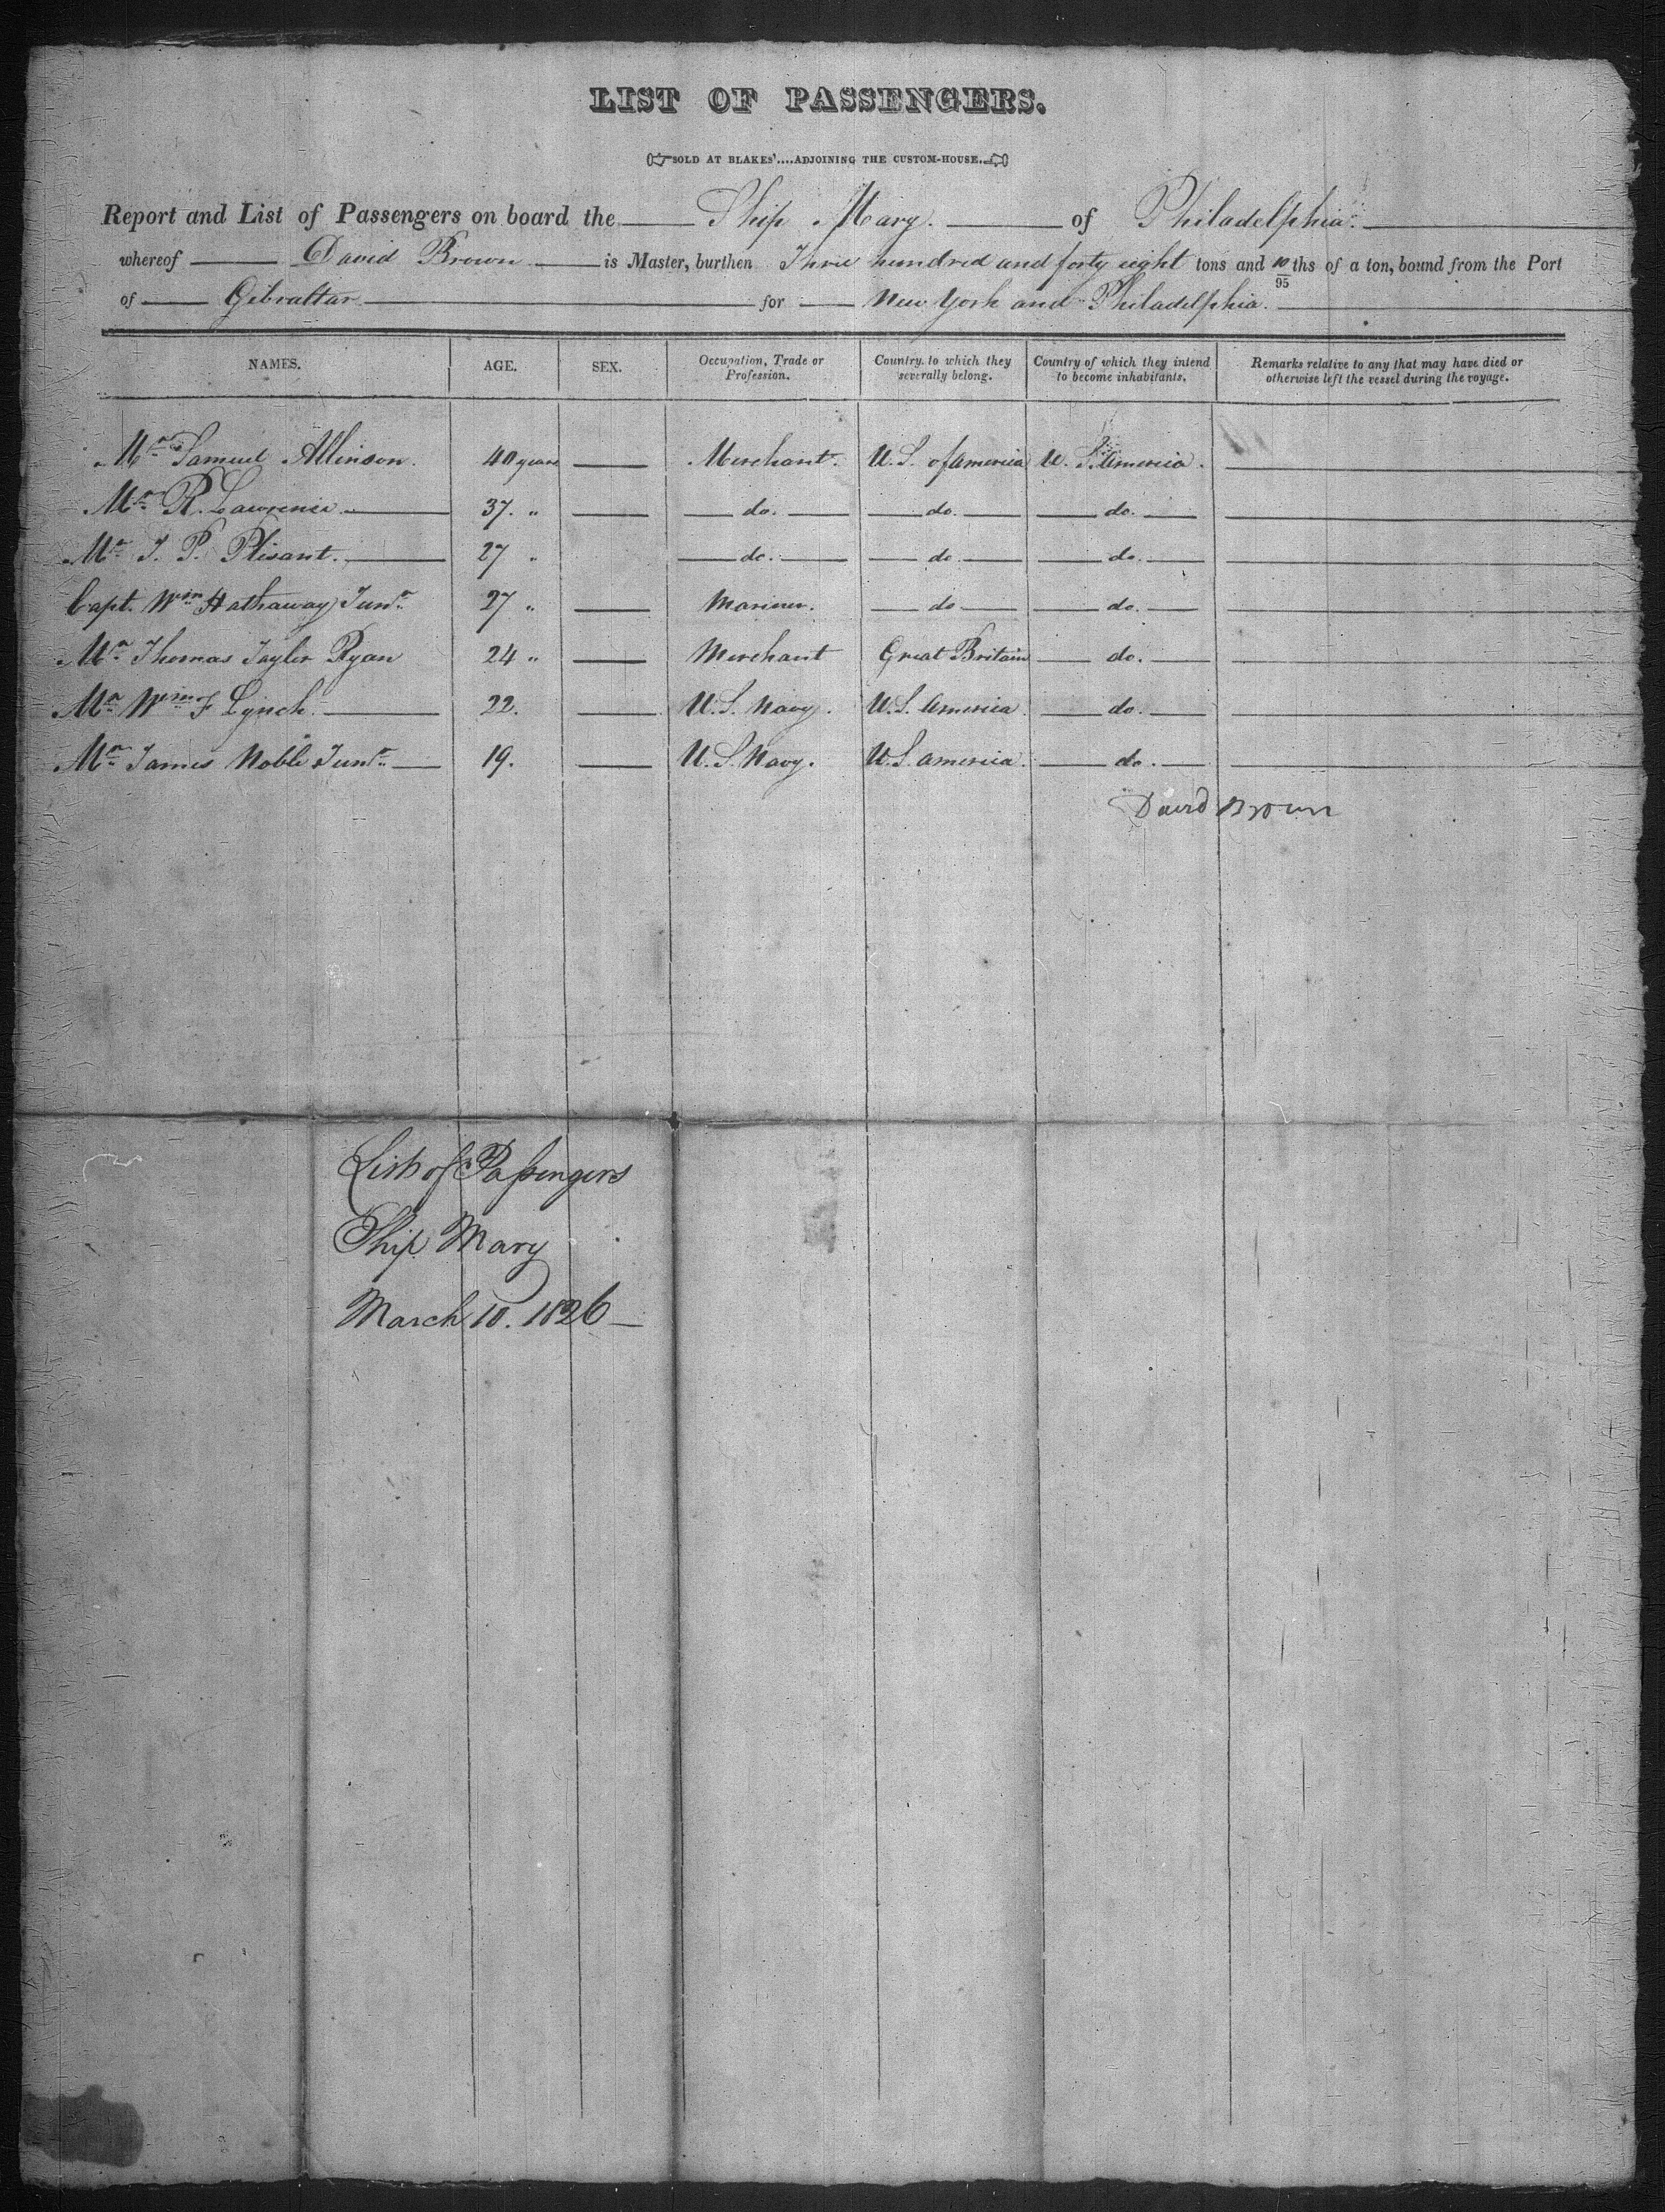 LIST OF PASSENGERS.
SOLD AT BLAKES'....ADJOINING THE CUSTOM-HOUSE.
Report and List of Passengers on board the Ship Mary. of Philadelphia.
whereof David Brown is Master, burthen Three hundred and forty eight tons and 10/95 ths of a ton, bound from the Port
of Gibraltar for New York and Philadelphia.
NAMES. AGE. SEX. Occupation, Trade or Profession. Country to which they severally belong. Country of which they intend to become inhabitants. Remarks relative to any that may have died or otherwise left the vessel during the voyage.
Mr Samuel Allinson. 40 years Merchant. U.S. of America U. S. America.
Mr R. Lawrence 37. " do. do. do.
Mr J. P. Plesant. 27 " do. do do.
Capt. Wm Hathaway Junr. 27 " Mariner. do do.
Mr Thomas Taylor Ryan 24 " Merchant Great Britain do.
Mr Wm F Lynch. 22. U.S. Navy. U.S. America do.
Mr James Noble Junr. 19. U.S. Navy. U.S. america. do.
David Brown
List of Passengers
Ship Mary
March 10. 1826